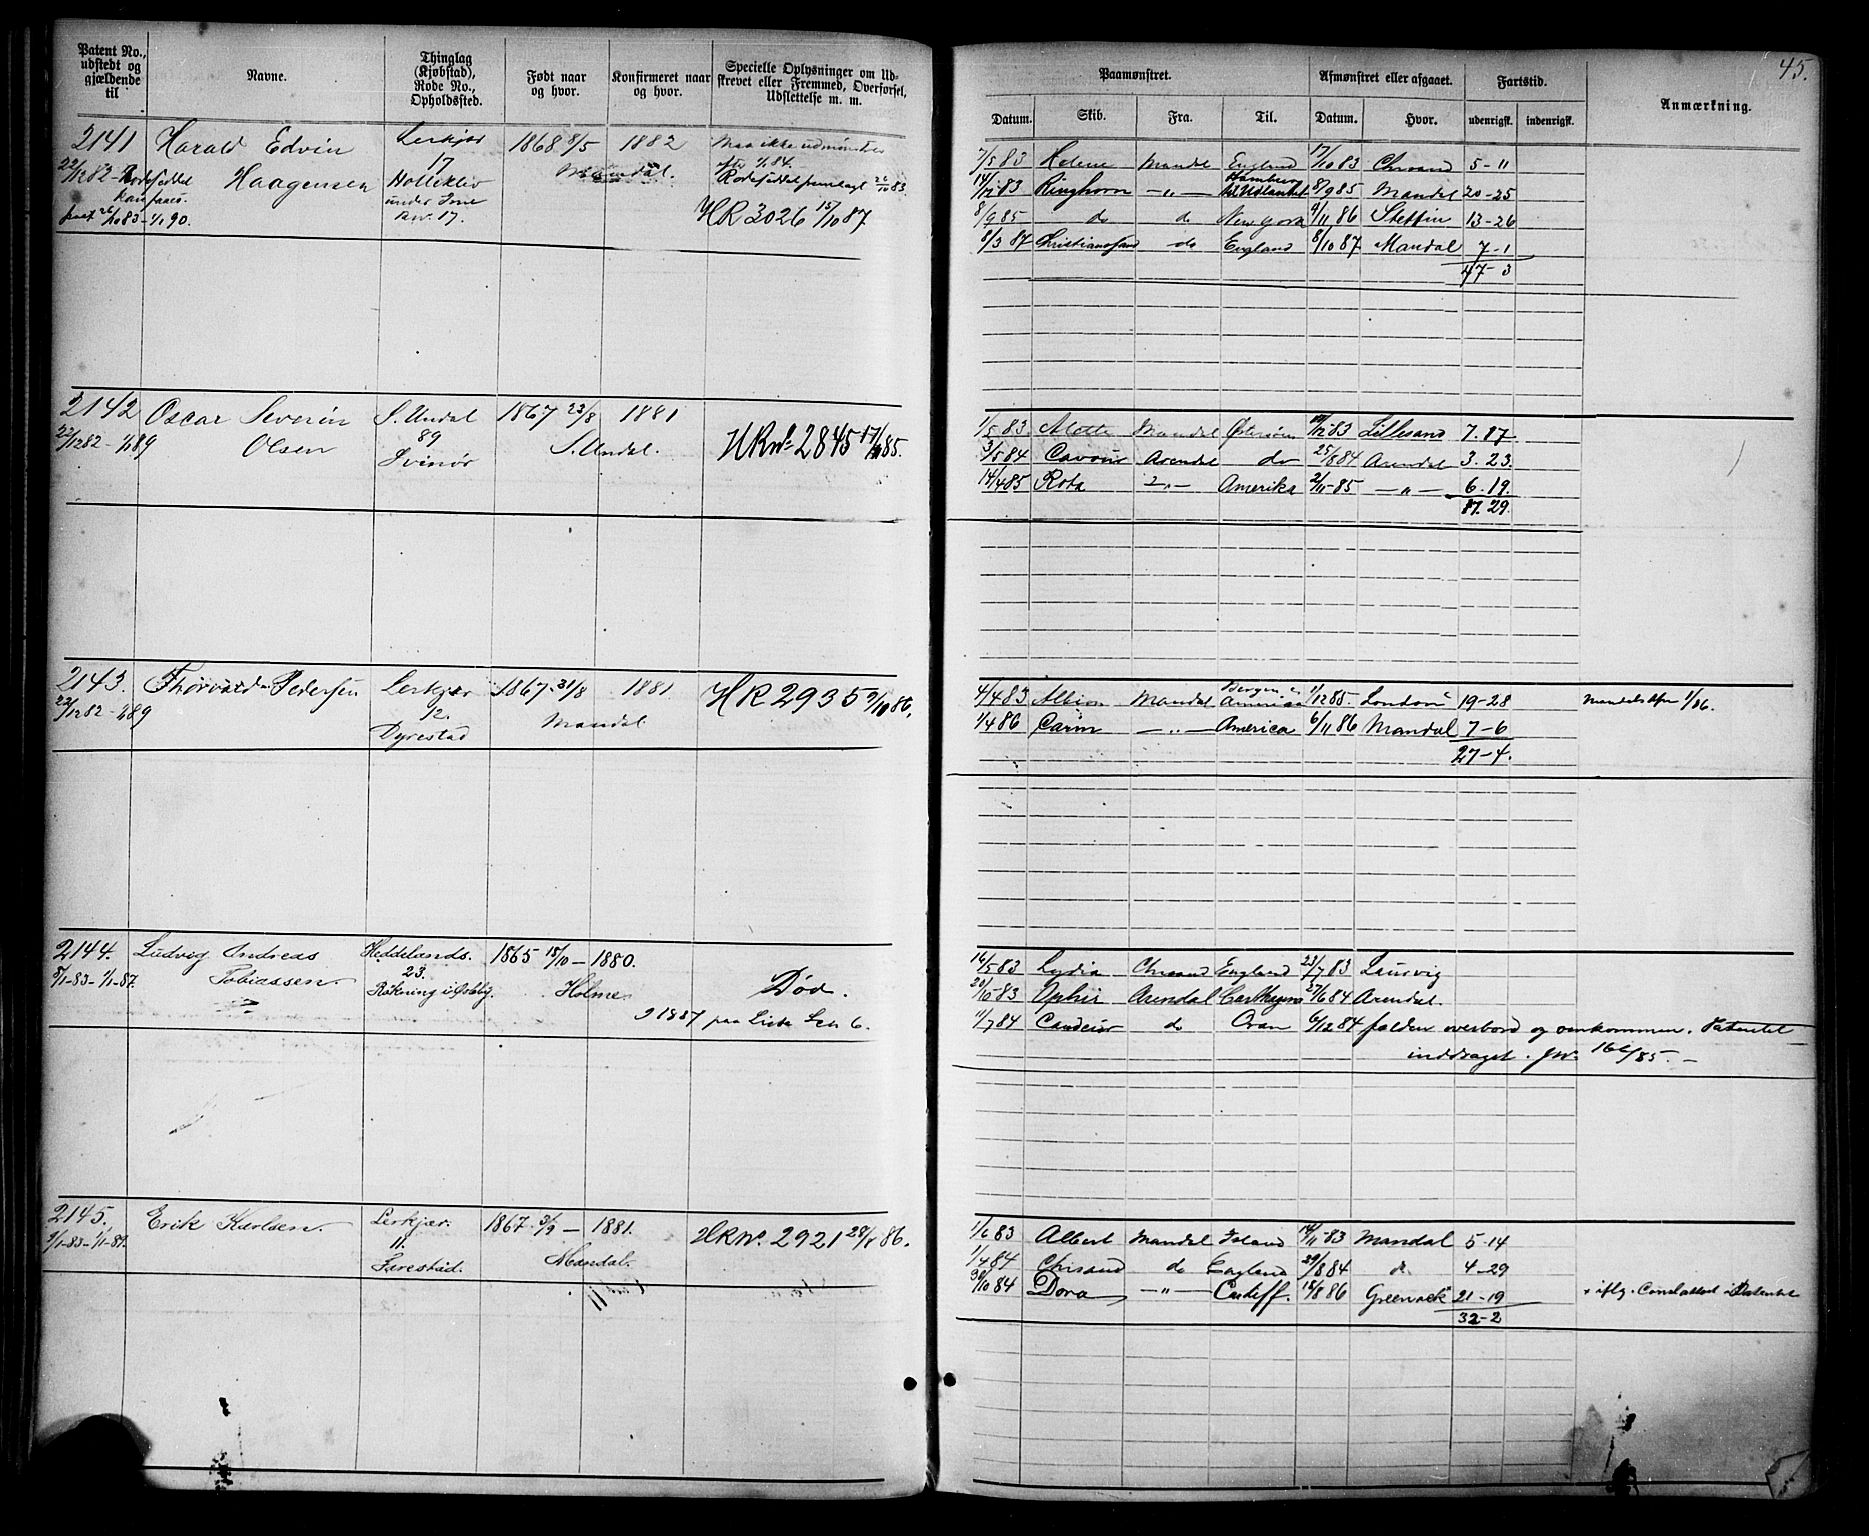 45.
Patent No., udstedt og gjældende til
Navne.
Thinglag (Kjøbstad), Rode No., Opholdssted.
Født naar og hvor.
Konfirmeret naar og hvor.
Specielle Oplysninger om Udskrevet eller Fremmed, Overførsel, Udslettelse m. m.
Paamønstret.
Afmønstret eller afgaaet.
Fartstid.
Anmærkning.
Datum.
Skib.
Fra.
Til.
Datum.
Hvor.
udenrigsk.
indenrigsk.
2141 Harald Edvin Lerkjær 1868 8/5 1882 Maa ikke udmønstres
22/12 82 Rodeseddel Haagensen 17 Mandal. 1/1 84.
Holleklev Rodeseddel 26/10 83
26/10 83-1/1 90. under HR 3026 15/10 87
No. 17.
7/5 83 Helene Mandal England 17/10 83 Chrsand 5-11
14/12 83 Ringhorn -"- Hamburg 8/9 85 Mandal 20-25
8/9 85 do do New York 4/11 86 Stettin 13-26
8/3 87 Christianssand do England 8/10 87 Mandal 7-1
47-3
2142 Oscar Severin S. Undal 1867 23/8 1881
22/12 82-1/1 89 Olsen 89 S. Undal. HR No 2845 17/11 85.
Svinør
1/5 83 Mandal Østersøen 83 Lillesand 7.27
3/5 84 Cavour Arendal do 25/8 84 Arendal 3.23.
14/4 85 Rota -"- Amerika 2/11 85 -"- 6.19.
29.
2143. Thorvald Pedersen Lerkjær 1867. 31/8 1881. HR 2935 9/10 86.
22/12 82-1/1 89 12. Mandal
Dyrestad
4/4 83 Albion Mandal Bergen 1/12 85. London 19-28
1/4 86 Carin -"- America 6/11 86 Mandal 7-6
27-4.
2144. Ludvig Andreas Heddelands. 1865 18/10 - 1880.
8/1-83-1/1-87. Tobiassen 23. Holme. Død.
paa Liste 6.
16/5 83 Lydia Chrsand England 23/7 83 Laurvig
20/10-83 Ophir Arendal Carthagena 27/6 84 Arendal.
11/7 84 do Oran 6/12 84 falden overbord og omkommen. Patentet
inddraget. 85. -
2145. Erik Karlsen. Lerkjær. 1867. 3/9 - 1881. HR No. 2921 28/8 86.
9/1-83-1/1-89. 11. Mandal.
Farestad.
1/6 83 Albert Mandal Island 14/11 83 Mandal 5-14
1/4 84 Chrsand do England 29/8 84 d. 4-29
30/10 84 Dora -"- Cardiff. 18/8 86 Greenock 21-19
32-2